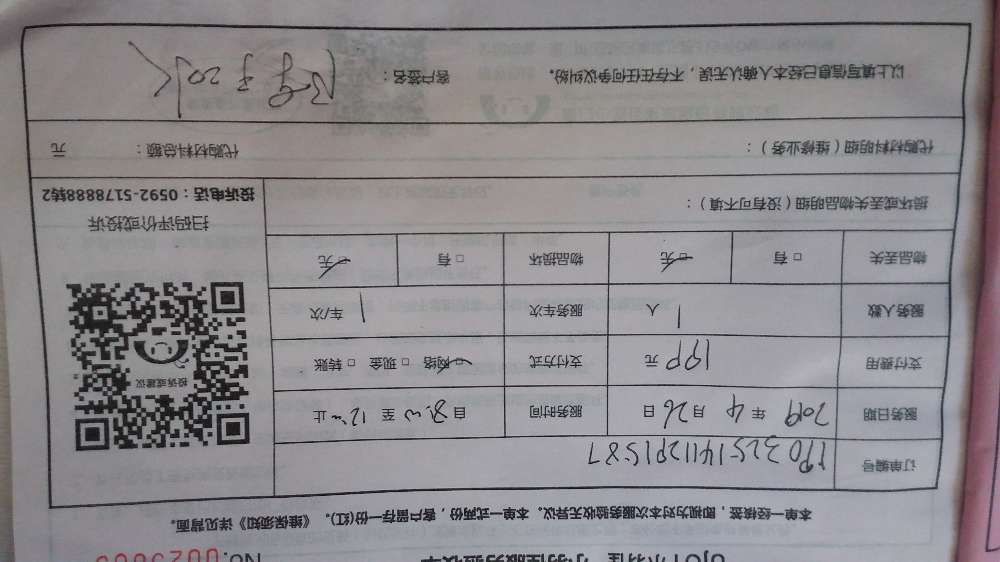 No.
本单一经核签，即视为对本次服务验收无异议。本单一式两份，客户留存一份(红)。《维保须知》详见背面。
订单编号 1903251411291587
服务日期 2019 年 4 月 26 日 服务时间 自 8:00 至 12:00 止
支付费用 199 元 支付方式 □ 网络 □ 现金 □ 转账
服务人数 1 人 服务车次 1 车/次
物品丢失 □ 有 □ 无 物品损坏 □ 有 □ 无
投诉或建议
扫码评价或投诉
投诉电话：0592-5178888转2
损坏或丢失物品明细（没有可不填）：
代购材料明细（维修业务）： 代购材料总额： 元
以上填写信息已经本人确认无误，不存在任何争议纠纷。 客户签名：